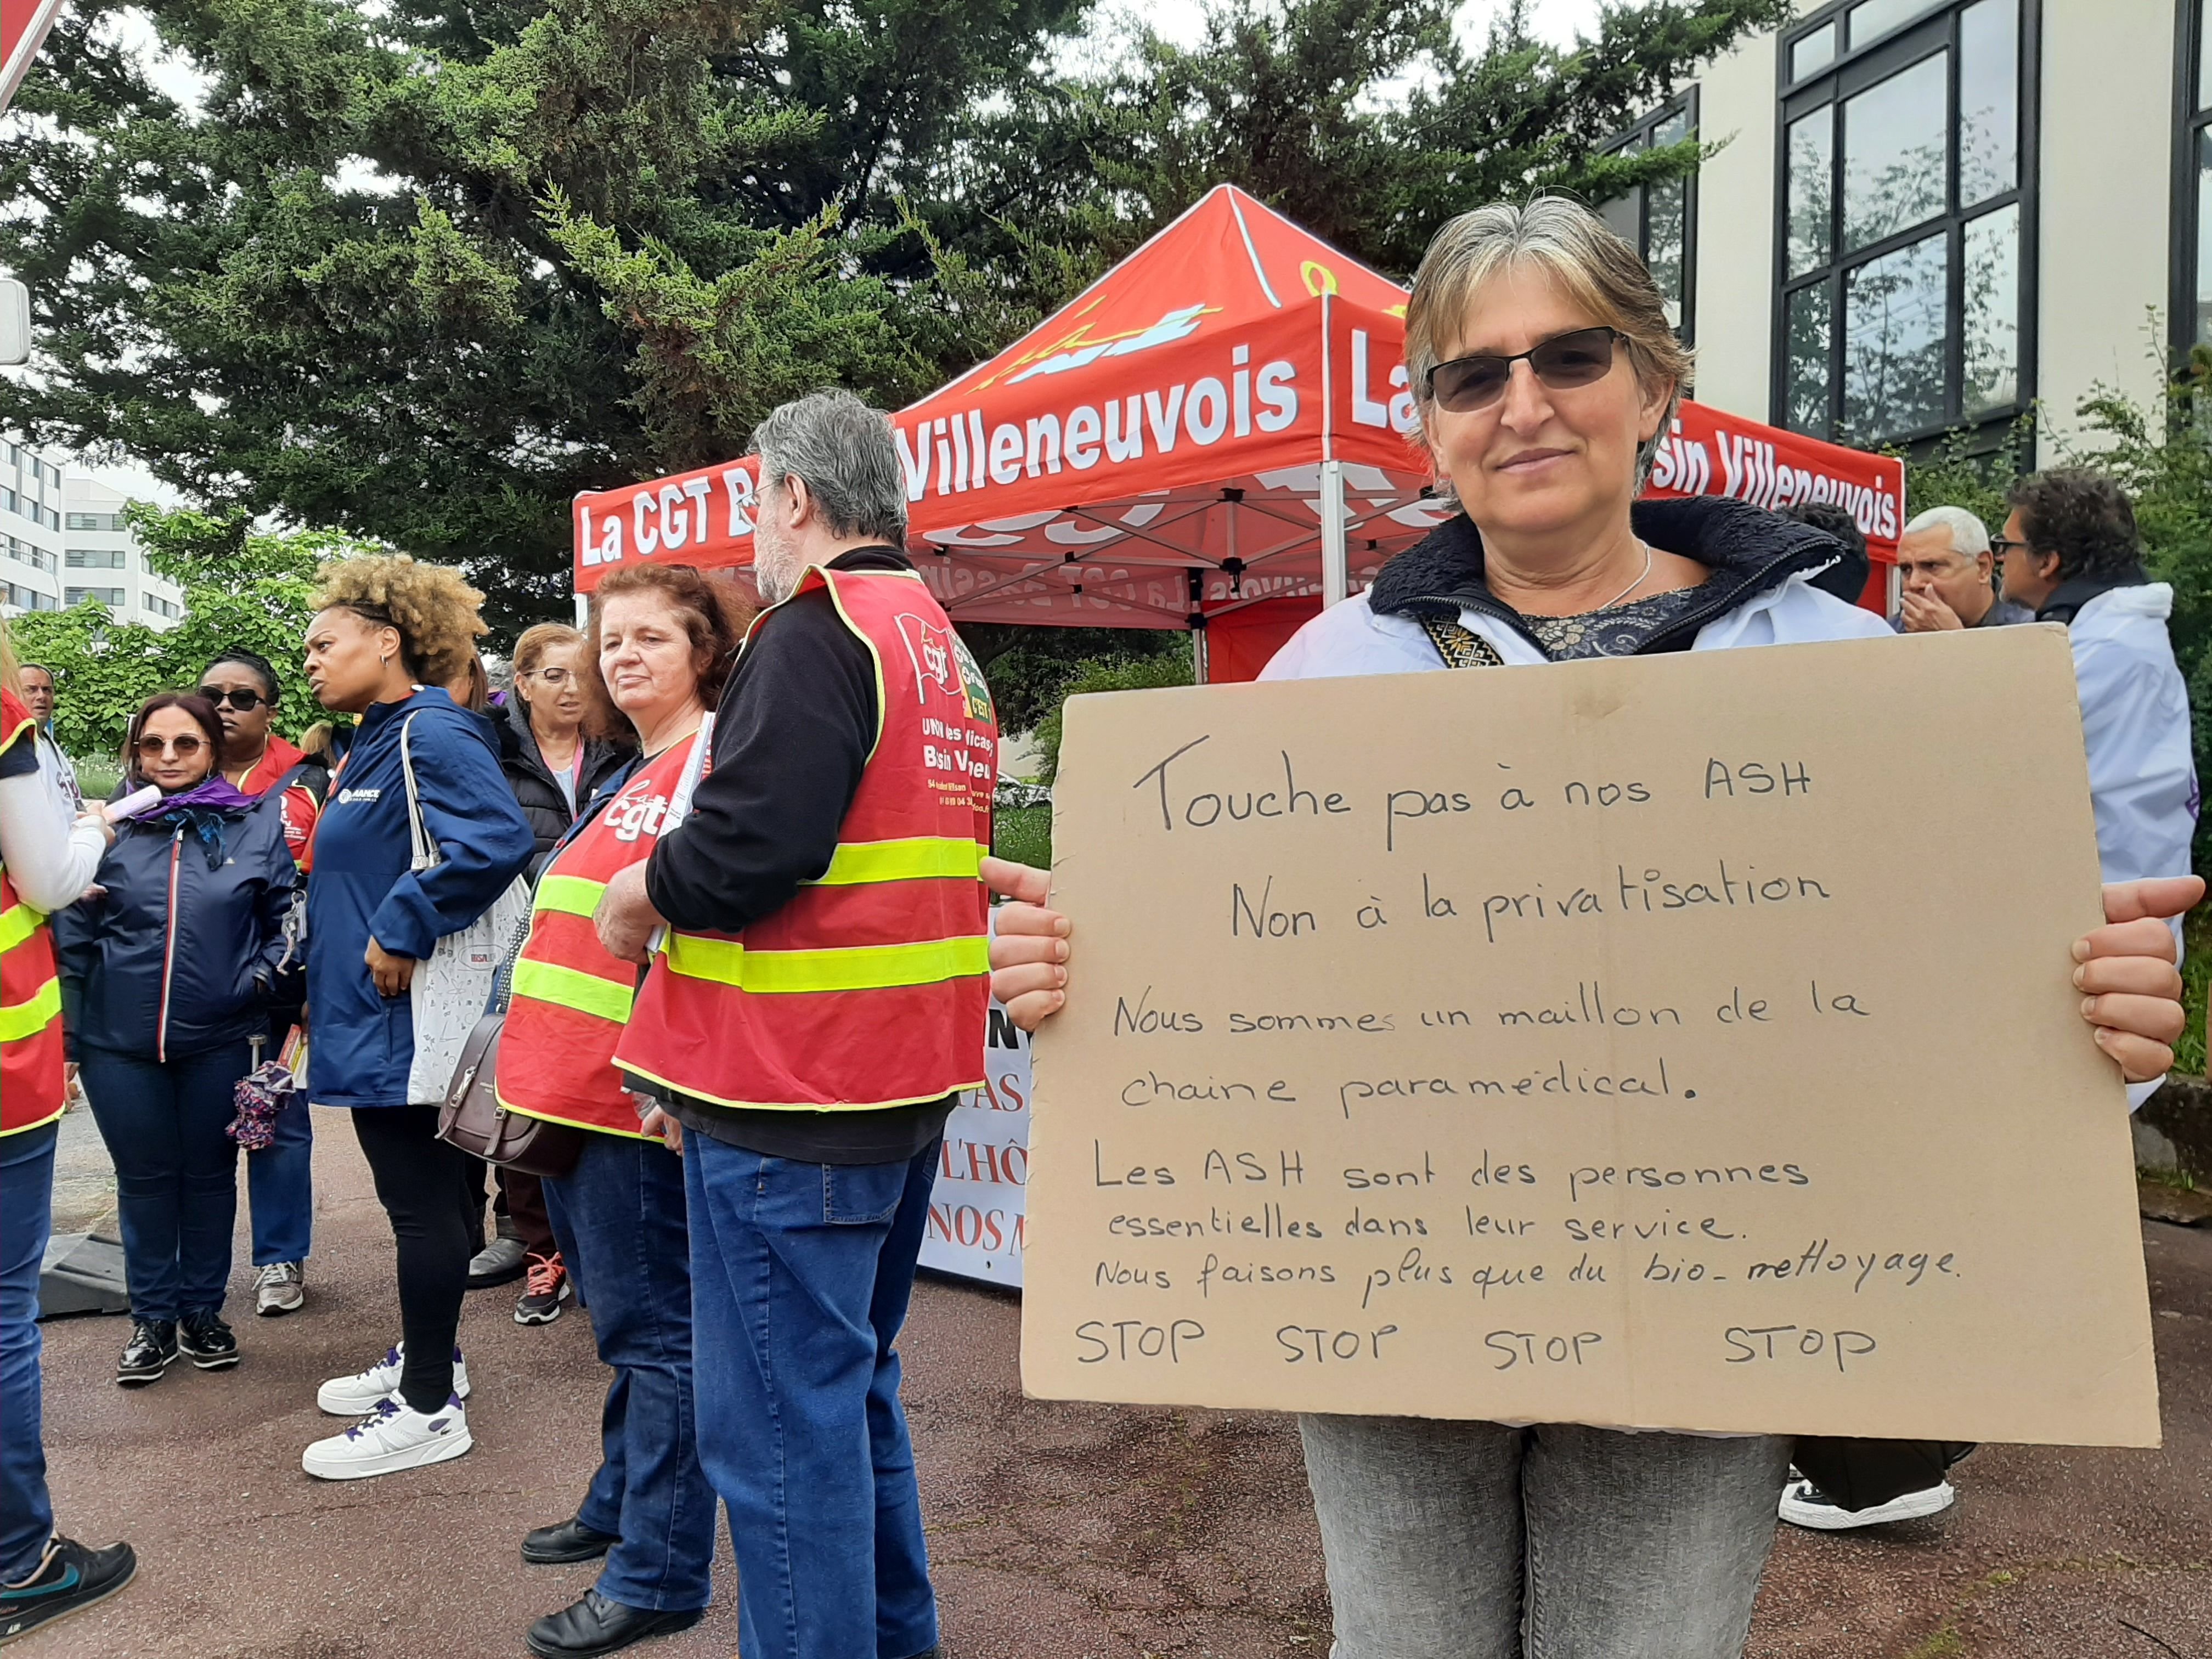 La CGT B
Villeneuvois
La
sin Villeneuvois
cgt
C'EST
cgt
Touche pas à nos ASH
Non à la privatisation
Nous sommes un maillon de la
chaine paramédical.
Les ASH sont des personnes
essentielles dans leur service.
Nous faisons plus que du bio-nettoyage.
STOP STOP STOP STOP
L'HÔ
NOS